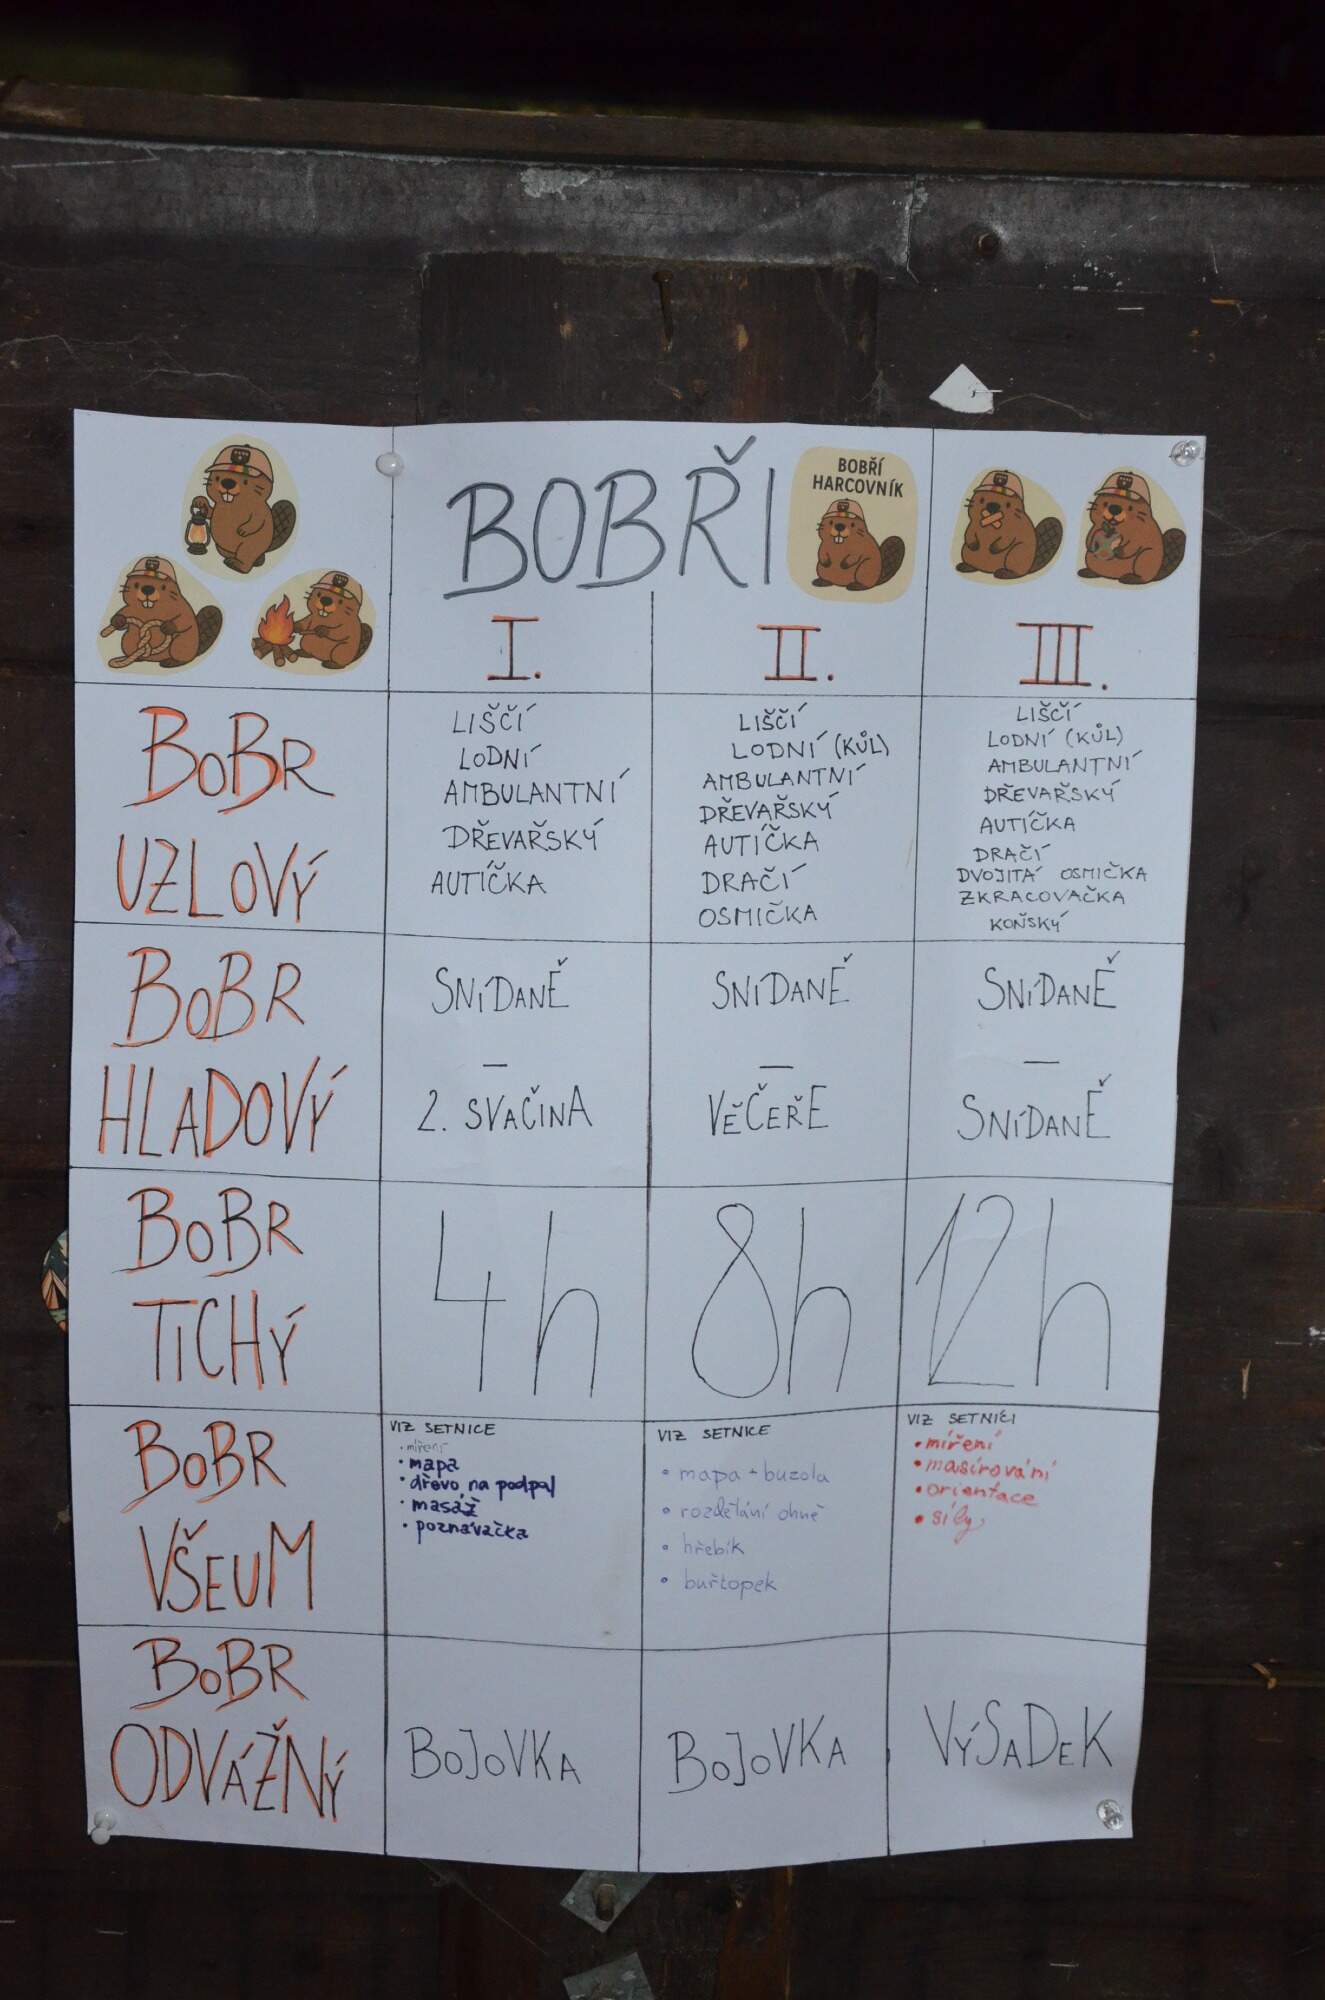 BOBŘI
BOBŘÍ
HARCOVNÍK
I.
II.
III.
BOBR
UZLOVÝ
LIŠČÍ
LODNÍ
AMBULANTNÍ
DŘEVAŘSKÝ
AUTÍČKA
LIŠČÍ
LODNÍ (KŮL)
AMBULANTNÍ
DŘEVAŘSKÝ
AUTÍČKA
DRAČÍ
OSMIČKA
LIŠČÍ
LODNÍ (KŮL)
AMBULANTNÍ
DŘEVAŘSKÝ
AUTÍČKA
DRAČÍ
DVOJITÁ OSMIČKA
ZKRACOVAČKA
KOŇSKÝ
BOBR
HLADOVÝ
SNÍDANĚ
–
2. SVAČINA
SNÍDANĚ
–
VĚČEŘE
SNÍDANĚ
–
SNÍDANĚ
BOBR
TICHÝ
4h
8h
12h
BOBR
VŠEUM
VIZ SETNICE
• míření
• mapa
• dřevo na podpal
• masáž
• poznávačka
VIZ SETNICE
• mapa + buzola
• rozdělání ohně
• hřebík
• buřtopek
VIZ SETNICI
• míření
• masírování
• orientace
• síly
BOBR
ODVÁŽNÝ
BOJOVKA
BOJOVKA
VÝSADEK